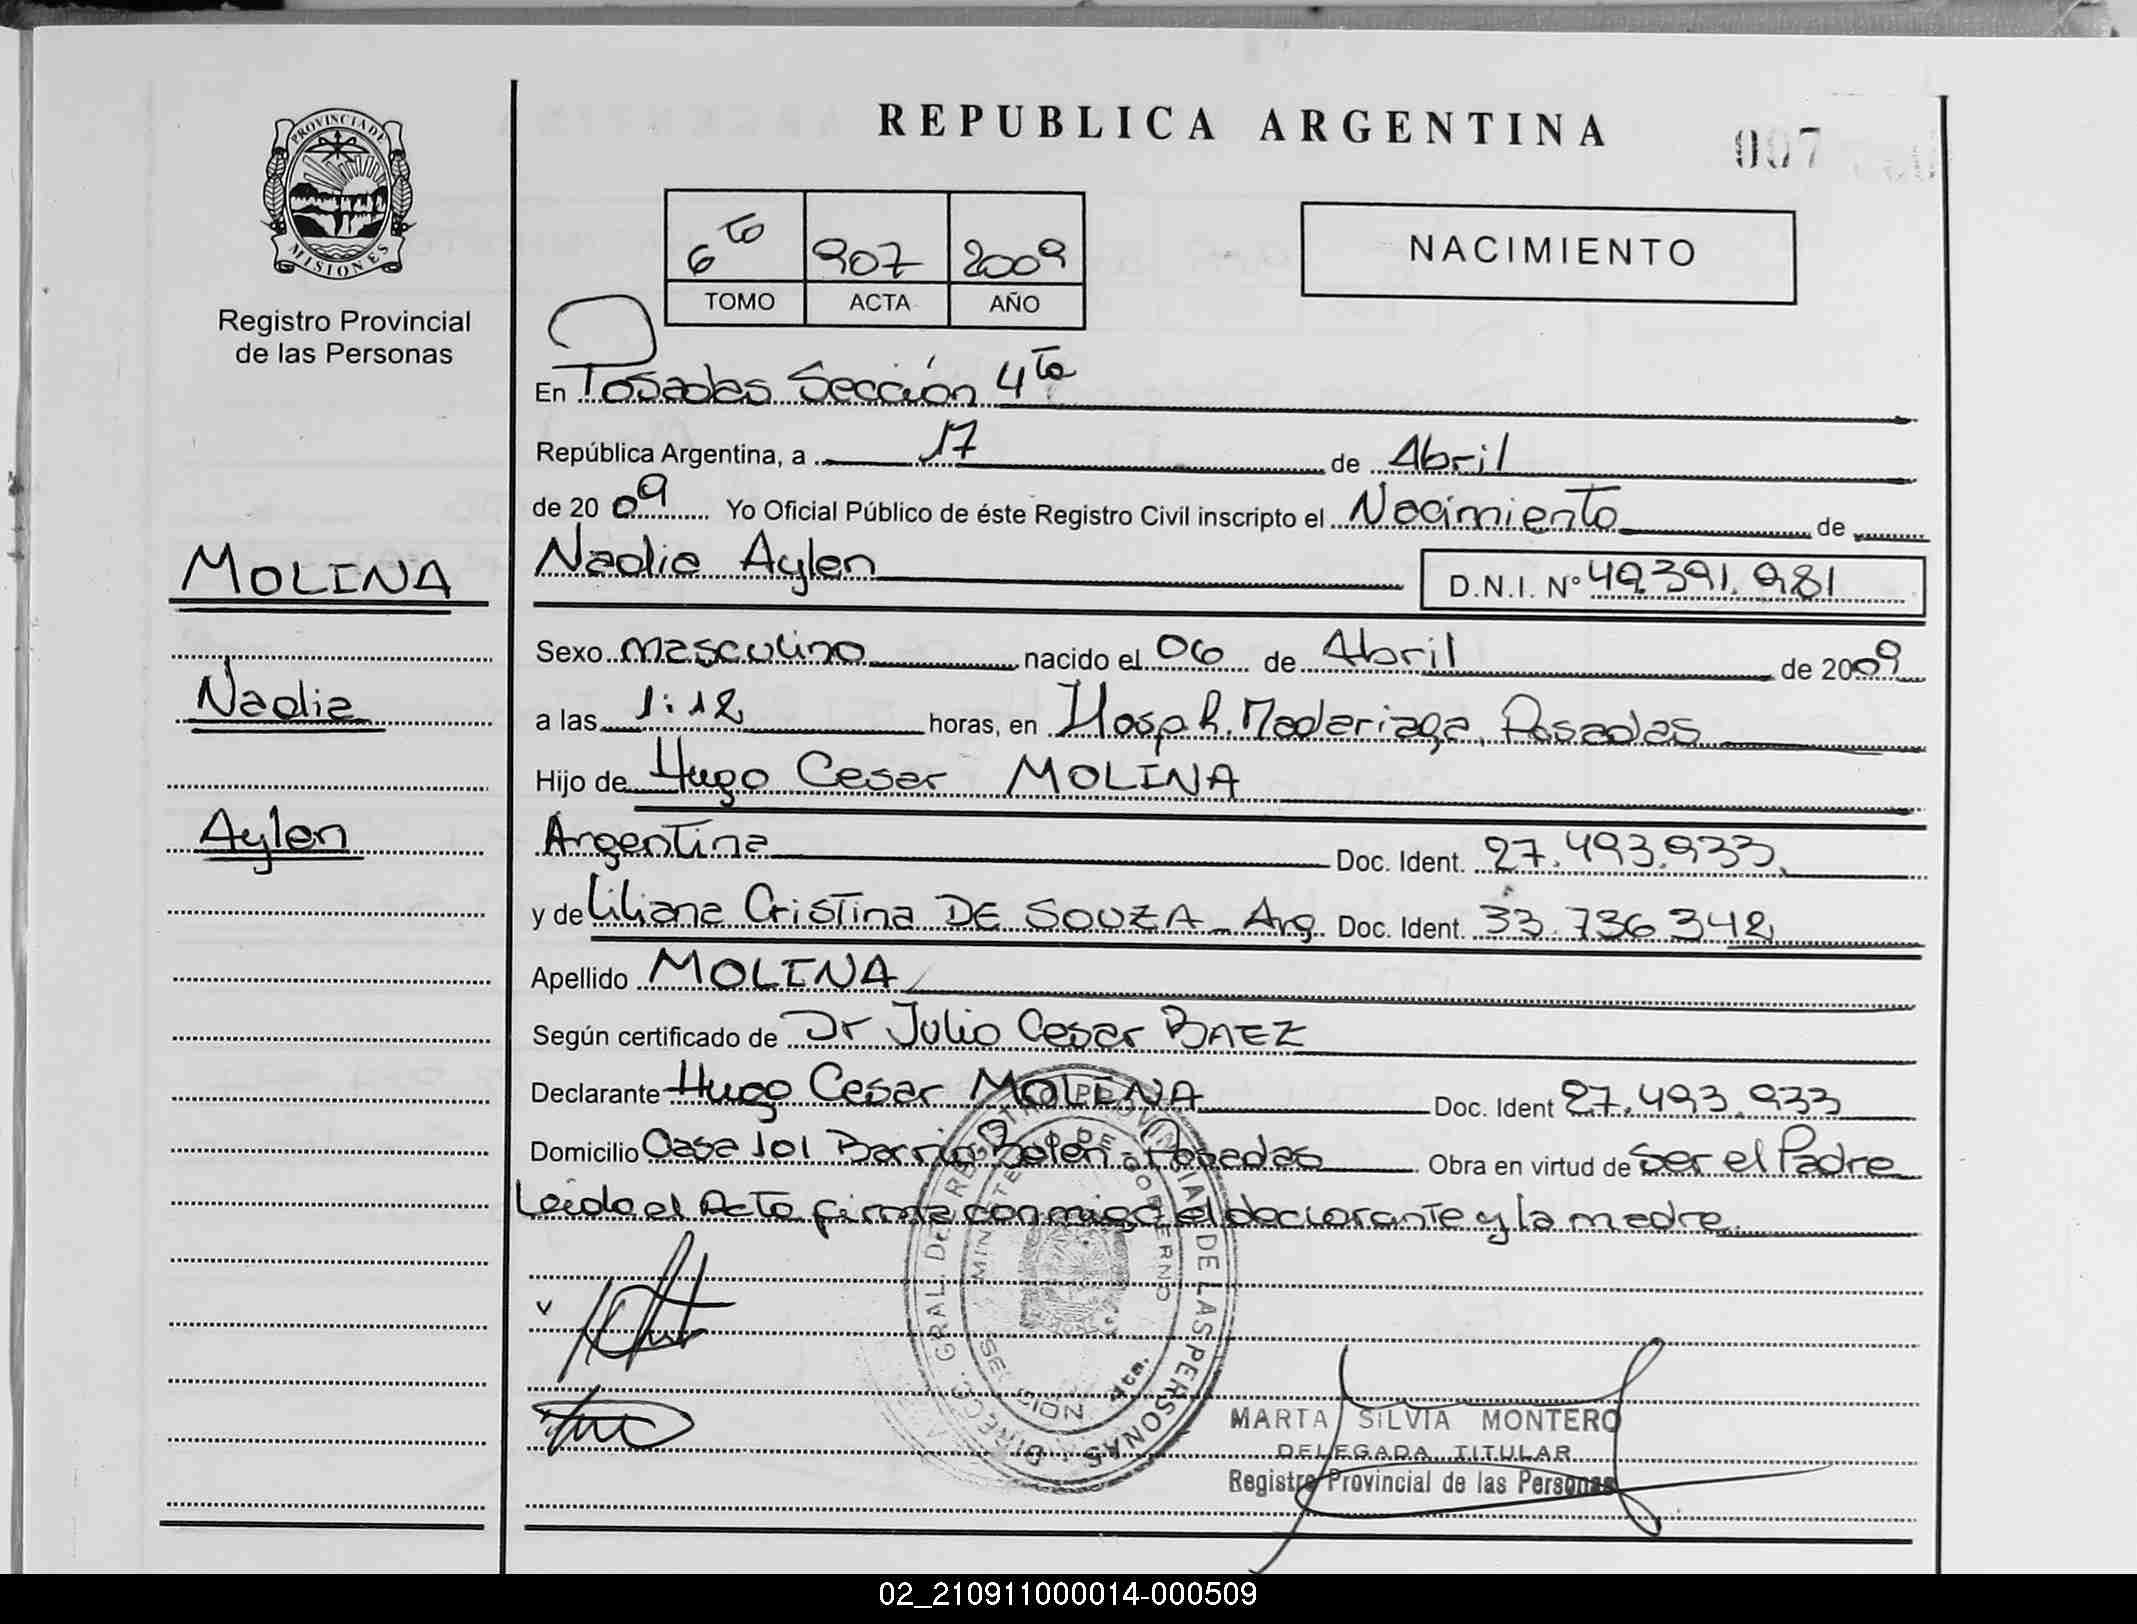 REPUBLICA ARGENTINA
007
PROVINCIA DE
MISIONES
Registro Provincial
de las Personas
6to 907 2009
TOMO ACTA AÑO
NACIMIENTO
En Posadas Sección 4ta
República Argentina, a 17 de Abril
de 2009 Yo Oficial Público de éste Registro Civil inscripto el Nacimiento de
MOLINA
Nadia Aylen D.N.I. Nº 49.391.981
Sexo masculino nacido el 06 de Abril de 2009
Nadia
a las 1:12 horas, en Hosp R. Madariaga, Posadas
Hijo de Hugo Cesar MOLINA
Aylen
Argentina Doc. Ident. 27.493.933
y de Liliana Cristina DE SOUZA - Arg. Doc. Ident. 33.736 342
Apellido MOLINA
Según certificado de Dr Julio Cesar BAEZ
Declarante Hugo Cesar MOLINA Doc. Ident 27.493.933
Domicilio Casa 101 Barrio Belén - Posadas Obra en virtud de Ser el Padre
Leida el Acta firma conmigo el declarante y la madre.
DIRECC. GRAL. DE REGISTRO PROVINCIAL DE LAS PERSONAS
MINISTERIO DE GOBIERNO
SECCION 4ta.
MARTA SILVIA MONTERO
DELEGADA TITULAR
Registro Provincial de las Personas
02_210911000014-000509